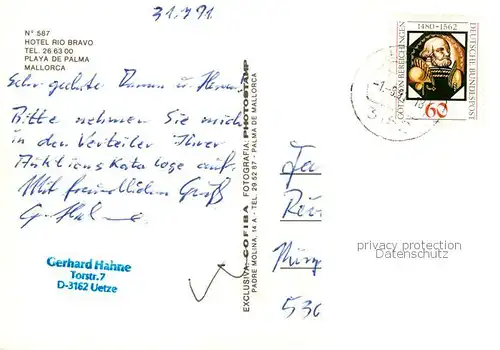 31.7.91
N° 567
HOTEL RIO BRAVO
TEL. 26 63 00
PLAYA DE PALMA
MALLORCA
Sehr geehrte Damen u. Herren
Bitte nehmen Sie mich
in den Verteiler Ihrer
Auktions Kata loge auf.
Mit freundlichem Gruß
Gerhard Hahne
Torstr.7
D-3162 Uetze
EXCLUSIVA: COFIBA - FOTOGRAFIA: PHOTOSTAMP
PADRE MOLINA, 14 A - TEL. 29 52 87 - PALMA DE MALLORCA
1480-1562
GÖTZ VON BERLICHINGEN
DEUTSCHE BUNDESPOST
60
privacy protection
Datenschutz